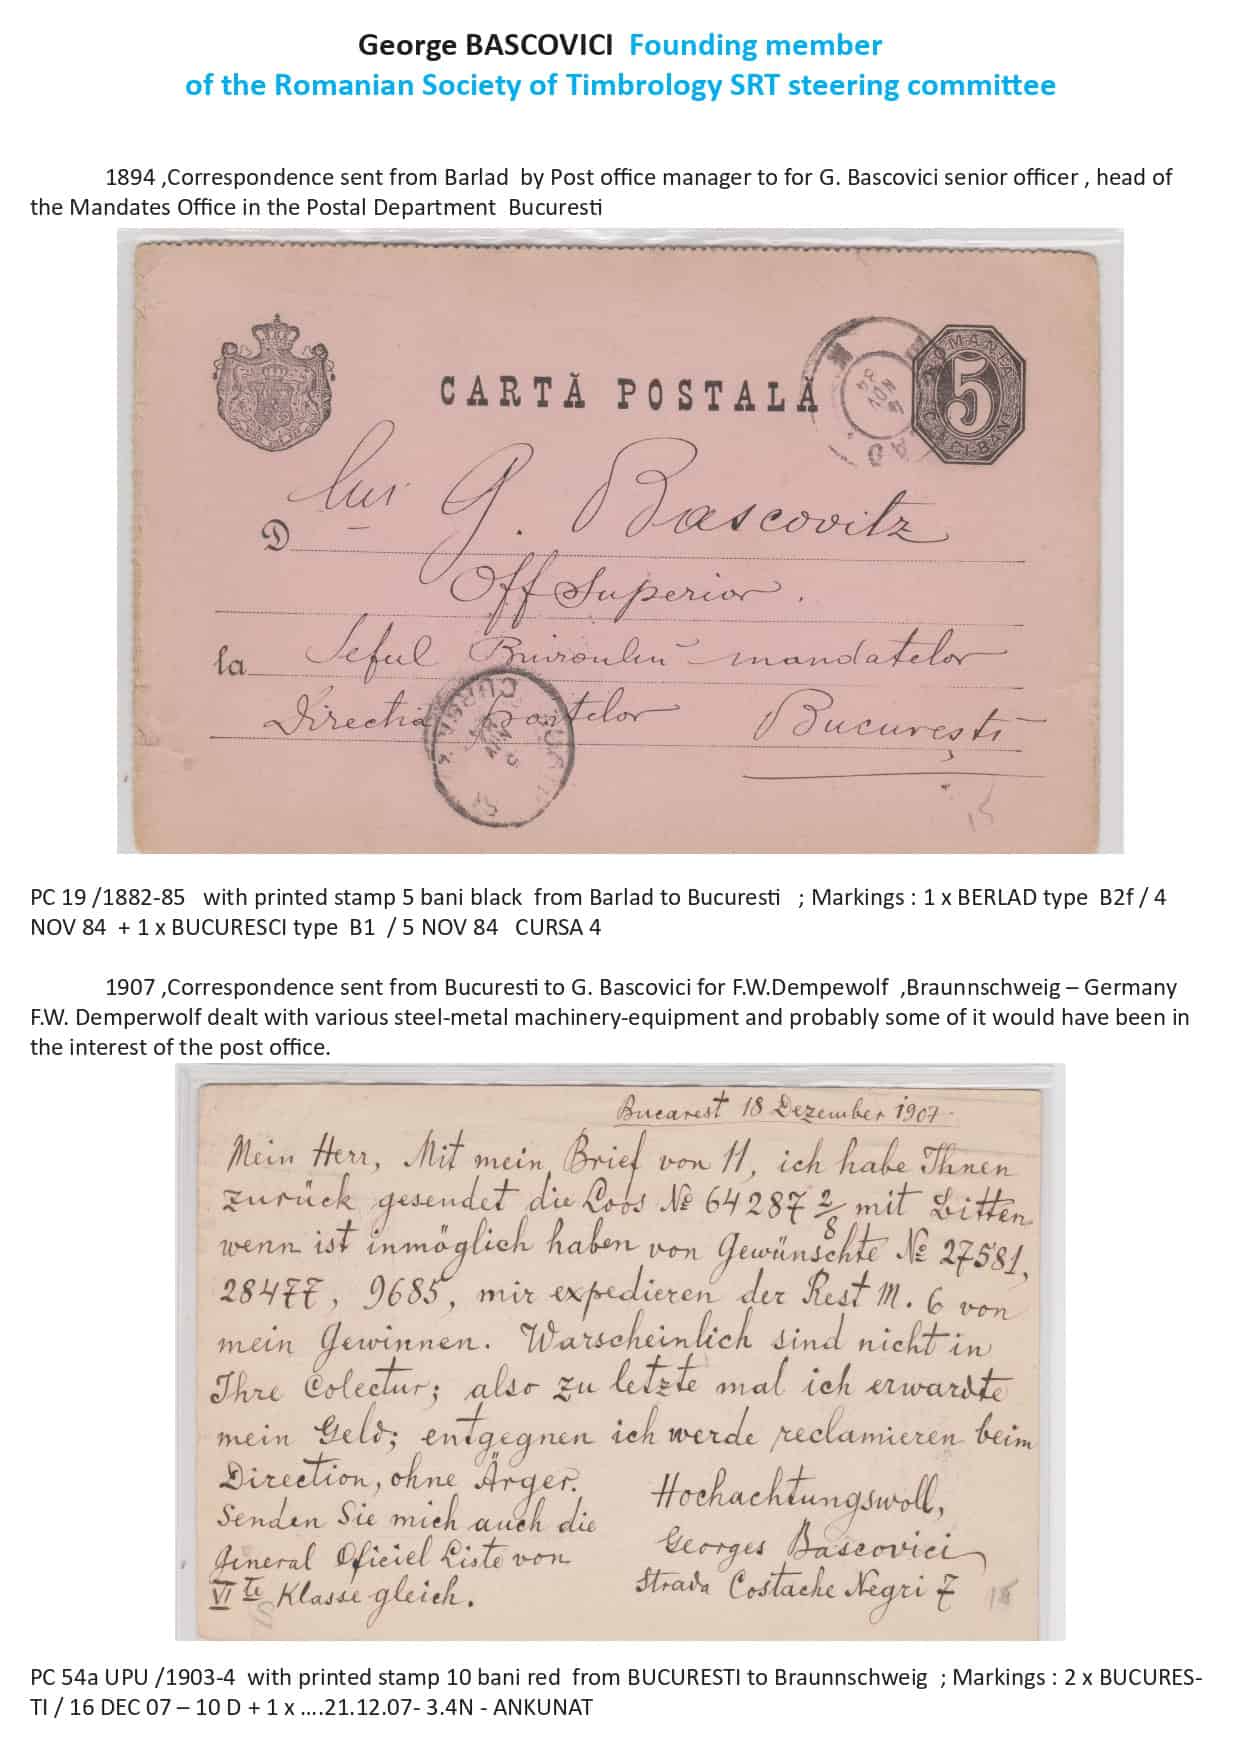 George BASCOVICI Founding member
of the Romanian Society of Timbrology SRT steering committee
1894 ,Correspondence sent from Barlad by Post office manager to for G. Bascovici senior officer , head of
the Mandates Office in the Postal Department Bucuresti
CARTĂ POSTALĂ
ROMANIA
5
CINCI BANI
NOV
84
AD
D lui G. Bascovitz
Off Superior.
la Seful Biuroului mandatelor
Directia postelor Bucuresti
CURSA
5
NOV
15
PC 19 /1882-85 with printed stamp 5 bani black from Barlad to Bucuresti ; Markings : 1 x BERLAD type B2f / 4
NOV 84 + 1 x BUCURESCI type B1 / 5 NOV 84 CURSA 4
1907 ,Correspondence sent from Bucuresti to G. Bascovici for F.W.Dempewolf ,Braunnschweig – Germany
F.W. Demperwolf dealt with various steel-metal machinery-equipment and probably some of it would have been in
the interest of the post office.
Bucarest 18 Dezember 1907.
Mein Herr, Mit mein Brief von 11, ich habe Ihnen
zurück gesendet die Loos № 64287 2/8 mit Bitten
wenn ist inmöglich haben von Gewünschte № 27581,
28477, 9685, mir expedieren der Rest M. 6 von
mein Gewinnen. Warscheinlich sind nicht in
Ihre Colectur; also zu letzte mal ich erwardte
mein Geld; entgegnen ich werde reclamieren beim
Direction, ohne Ärger.
Senden Sie mich auch die
General Oficiel Liste von
VI te Klasse gleich.
Hochachtungswoll,
Georges Bascovici
Strada Costache Negri 7
PC 54a UPU /1903-4 with printed stamp 10 bani red from BUCURESTI to Braunnschweig ; Markings : 2 x BUCURES-
TI / 16 DEC 07 – 10 D + 1 x ….21.12.07- 3.4N - ANKUNAT